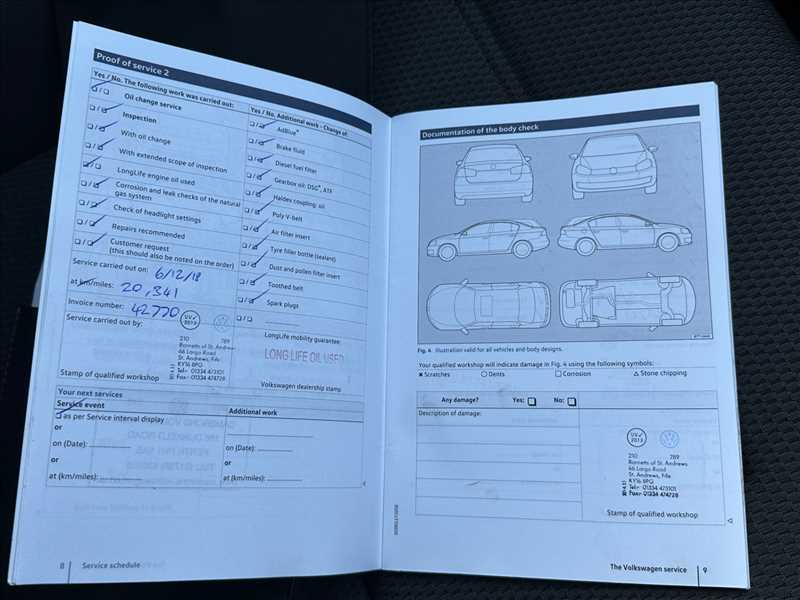 Proof of service 2
Yes / No. The following work was carried out:
Oil change service
Inspection
With oil change
With extended scope of inspection
LongLife engine oil used
Corrosion and leak checks of the natural
gas system
Check of headlight settings
Repairs recommended
Customer request
(this should also be noted on the order)
Service carried out on: 6/12/18
at km/miles: 20,341
Invoice number: 42770
Service carried out by:
UV✓
2013
210 789
Barnetts of St. Andrews
66 Largo Road
St. Andrews, Fife
KY16 8PQ
Tel:- 01334 473101
Fax:- 01334 474728
Stamp of qualified workshop
Yes / No. Additional work - Change of:
AdBlue®
Brake fluid
Diesel fuel filter
Gearbox oil: DSG®, ATX
Haldex coupling: oil
Poly V-belt
Air filter insert
Tyre filler bottle (sealant)
Dust and pollen filter insert
Toothed belt
Spark plugs
LongLife mobility guarantee:
LONG LIFE OIL USED
Volkswagen dealership stamp
Your next services
Service event
as per Service interval display
or
on (Date):
or
at (km/miles):
Additional work
on (Date):
or
at (km/miles):
8 Service schedule
Documentation of the body check
Fig. 4 Illustration valid for all vehicles and body designs.
Your qualified workshop will indicate damage in Fig. 4 using the following symbols:
× Scratches ○ Dents □ Corrosion △ Stone chipping
Any damage? Yes: No:
Description of damage:
UV✓
2013
210 789
Barnetts of St. Andrews
66 Largo Road
St. Andrews, Fife
KY16 8PQ
Tel:- 01334 473101
Fax:- 01334 474728
Stamp of qualified workshop
The Volkswagen service 9